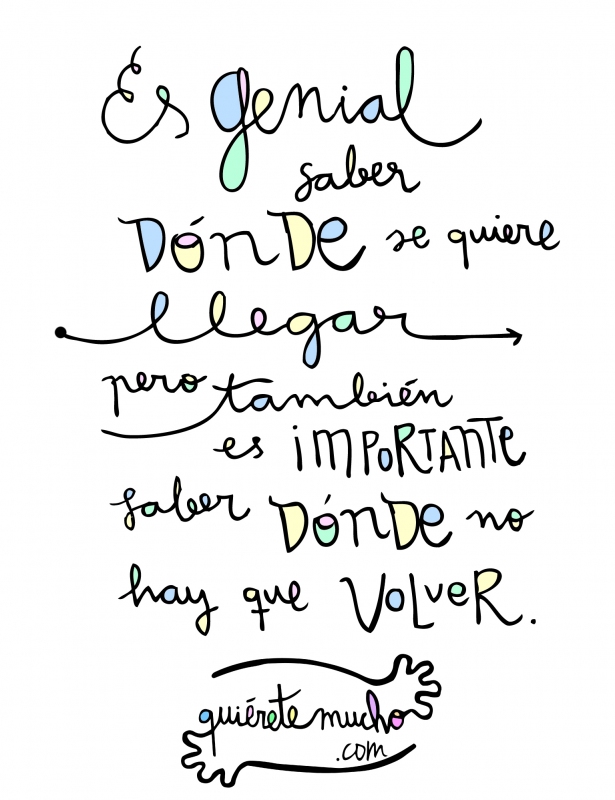 Es genial
saber
DÓNDE se quiere
llegar
pero también
es IMPORTANTE
saber DÓNDE no
hay que VOLVER.
quiéretemucho
.com